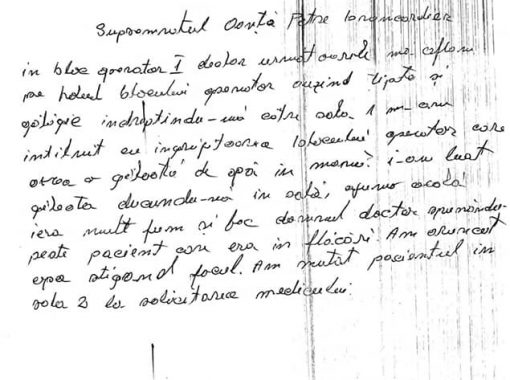 Supsemnatul Oanță Petre brancardier
in bloc operator I declar urmatoarele me aflam
pe holul blocului operator auzind țipete și
gălăgie indreptindu-mă către sala 1 m-am
intîlnit cu ingrijitoarea blocului operator care
avea o găleată de apă in mană? i-am luat
găleata ducandu-ma in sală, ajuns acolo
iera mult fum si foc domnul doctor
peste pacient care era in flăcări. Am aruncat
apa stigand focul. Am mutat pacientul in
sala 2 la solicitarea medicului.